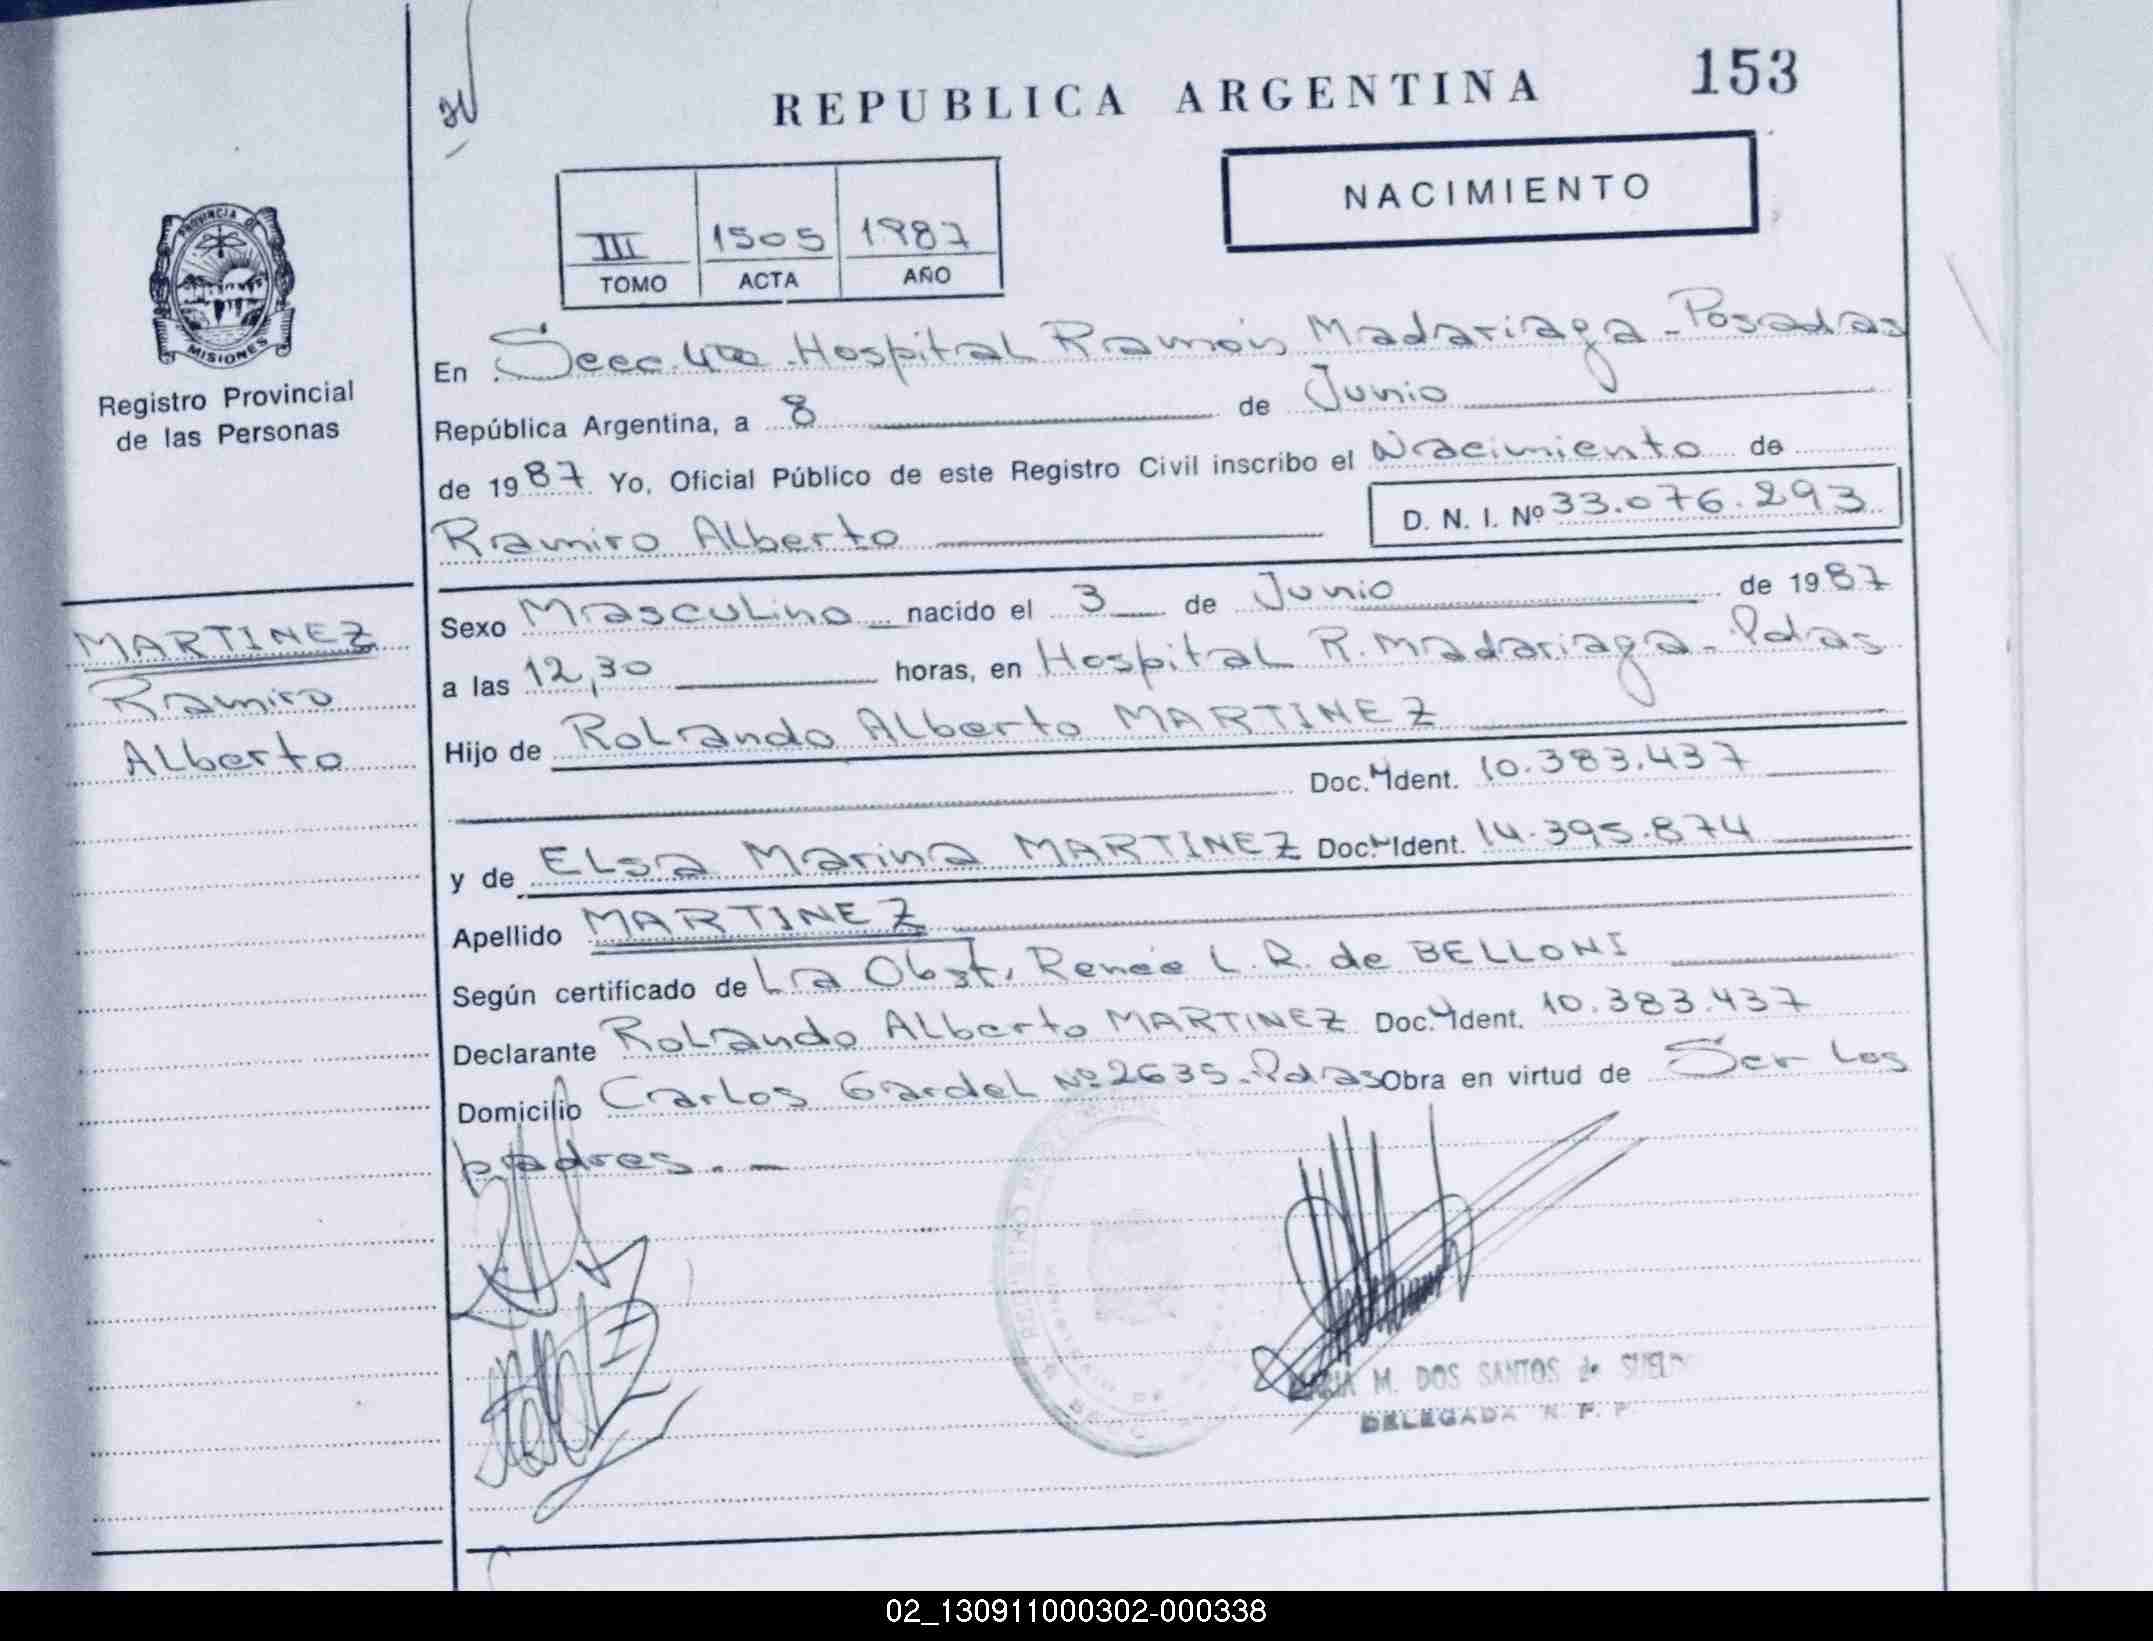 153
REPUBLICA ARGENTINA
NACIMIENTO
III 1505 1987
TOMO ACTA AÑO
PROVINCIA DE
MISIONES
Registro Provincial
de las Personas
MARTINEZ
Ramiro
Alberto
En Secc. 4ta. Hospital Ramón Madariaga - Posadas
República Argentina, a 8 de Junio
de 1987 Yo, Oficial Público de este Registro Civil inscribo el Nacimiento de
Ramiro Alberto D. N. I. Nº 33.076.293
Sexo Masculino nacido el 3 de Junio de 1987
a las 12,30 horas, en Hospital R. Madariaga - Pdas
Hijo de Rolando Alberto MARTINEZ
Doc. Ident. 10.383.437
y de Elsa Marina MARTINEZ Doc. Ident. 14.395.874
Apellido MARTINEZ
Según certificado de La Obst. Renée L. R. de BELLONI
Declarante Rolando Alberto MARTINEZ Doc. Ident. 10.383.437
Domicilio Carlos Gardel Nº 2635 - Pdas Obra en virtud de Ser los
padres. -
M. DOS SANTOS de
DELEGADA
02_130911000302-000338